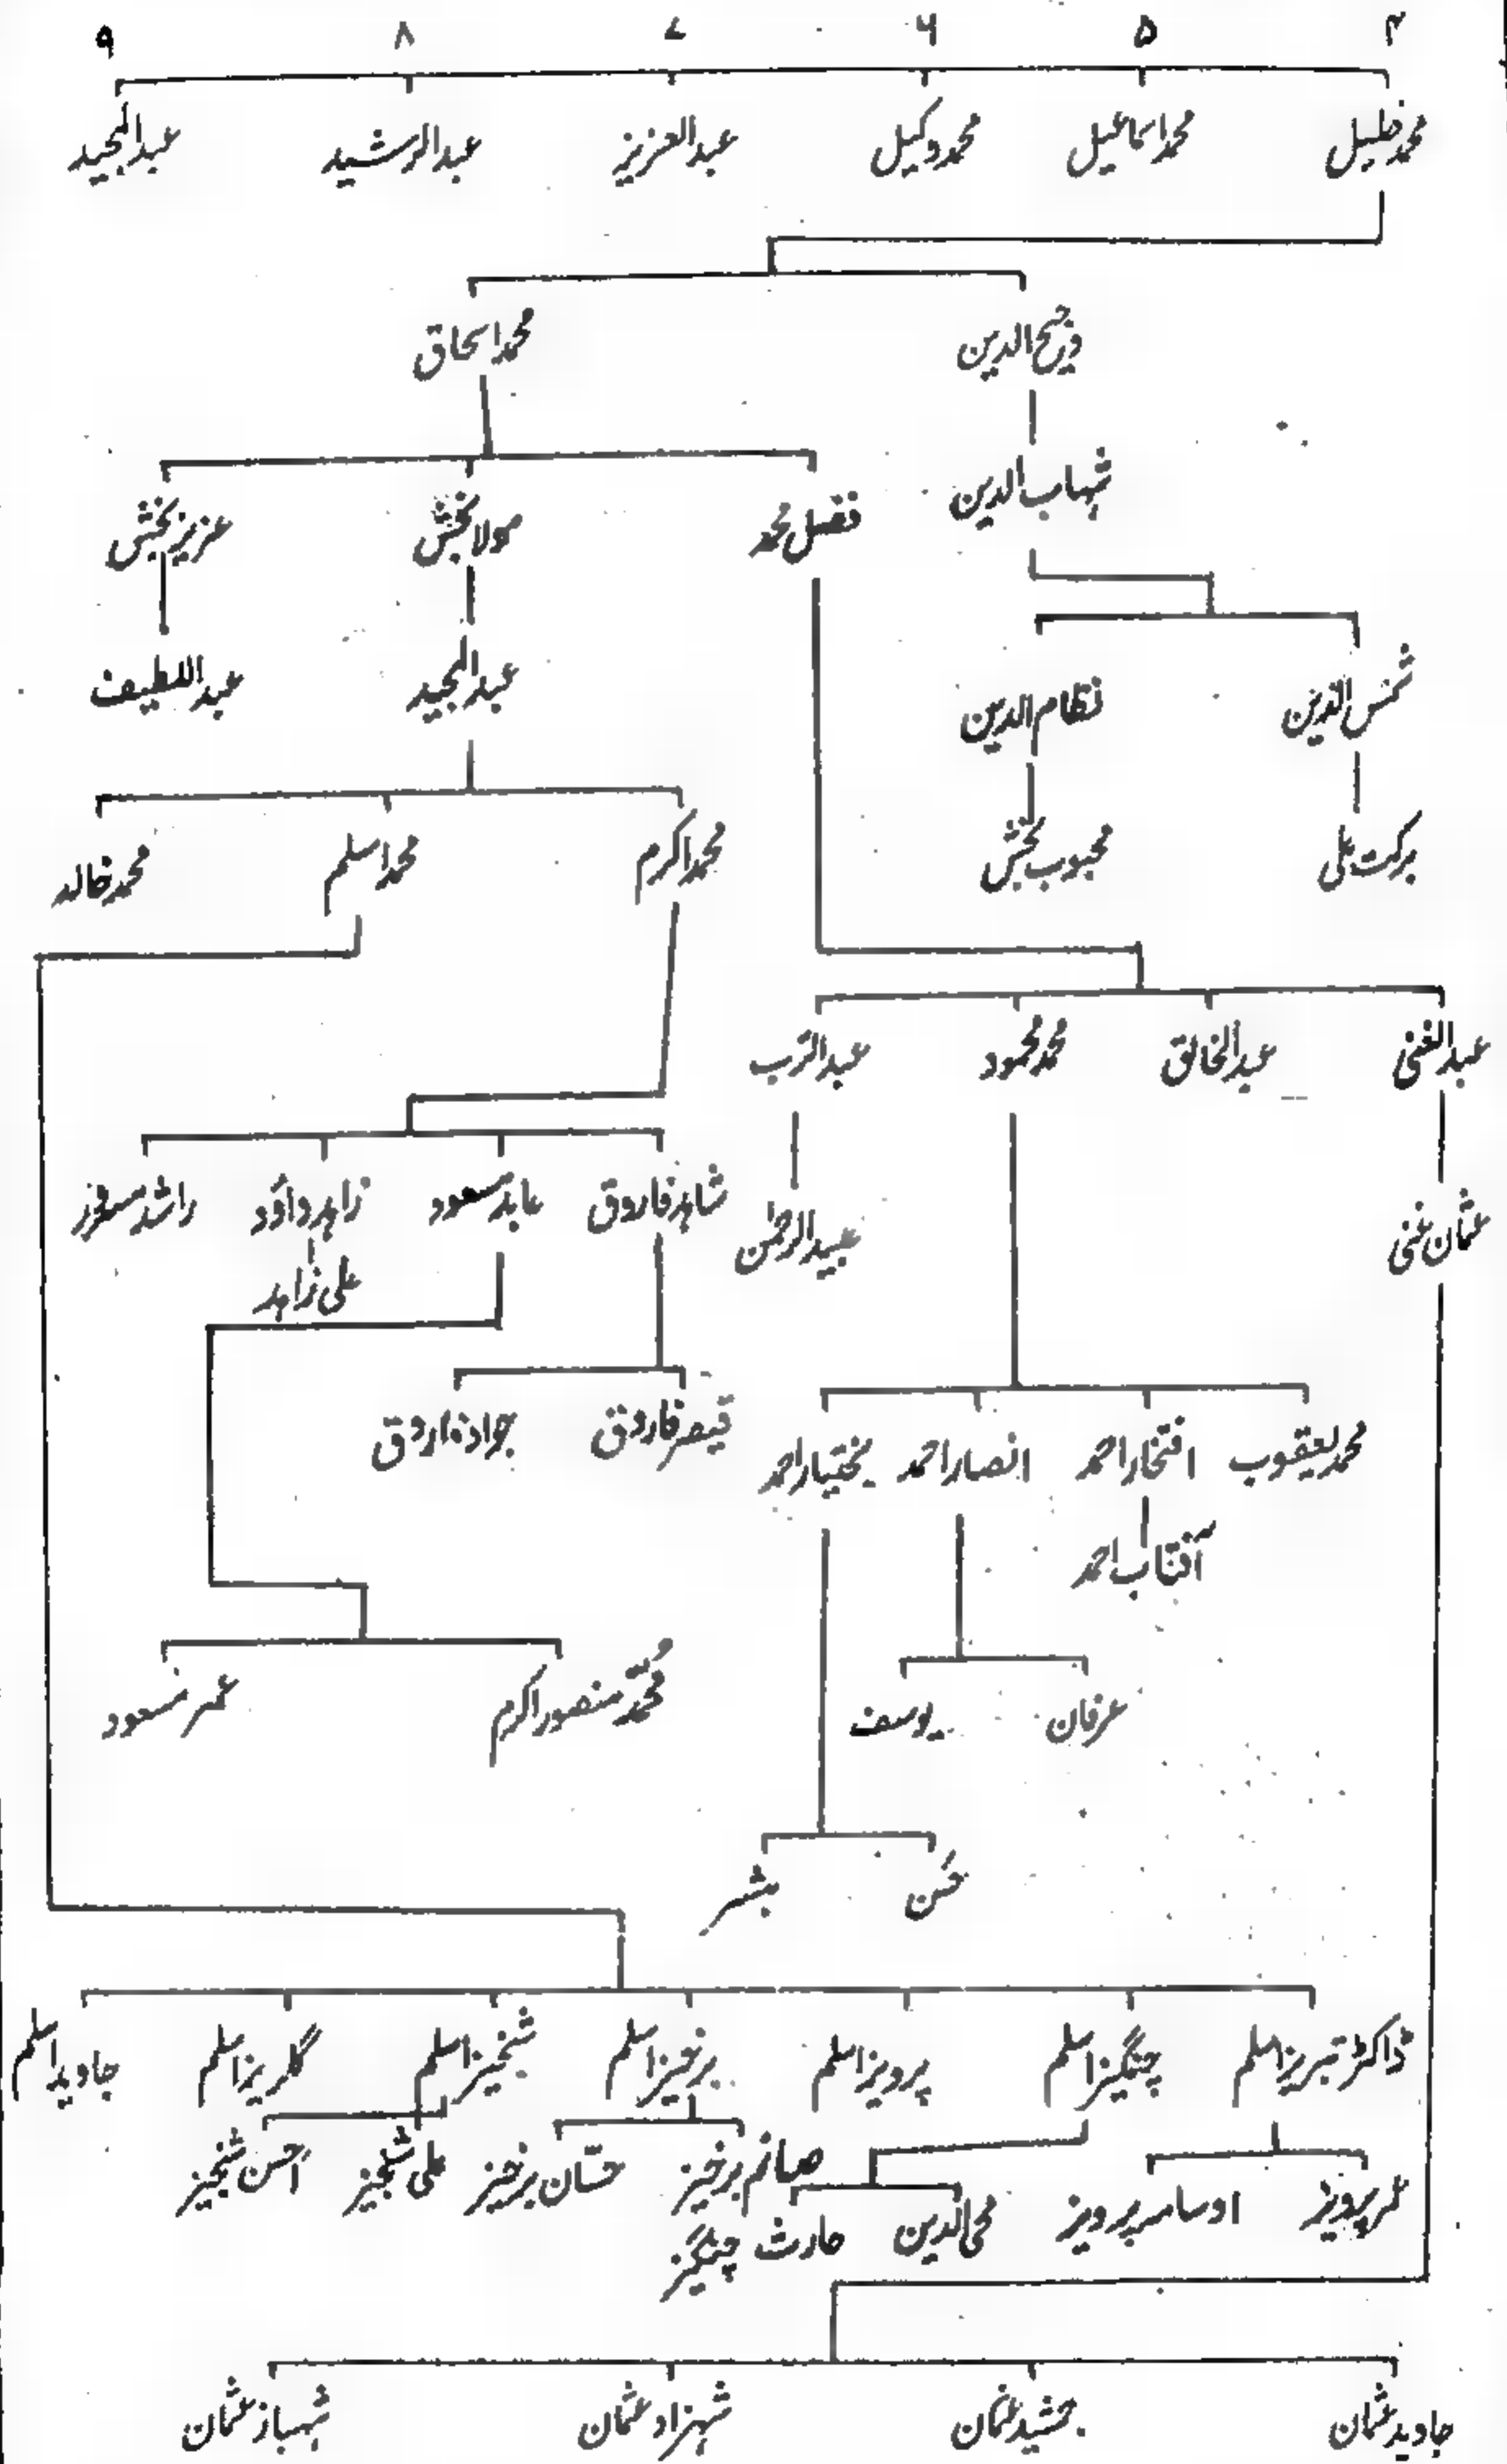 ۴ ۵ ۶ ۷ ۸ ۹
محمد خلیل محمد اسماعیل محمد وکیل عبدالعزیز عبدالرشید عبدالمجید
الدین محمد اسحاق
شہاب الدین فضل محمد مولا بخش عزیز بخش
شمس الدین نظام الدین عبدالمجید عبداللطیف
برکت علی محبوب بخش محمد اکرم محمد اسلم محمد خالد
عبدالغنی عبدالخالق محمد محمود عبدالرب
عثمان غنی عبیدالرحمٰن شاہد فاروق عابد مسعود زاہد داؤد راشد
علی زاہد
محمد یعقوب افتخار احمد انصار احمد بختیار احمد قیصر فاروق جواد فاروق
آفتاب احمد
عرفان یوسف محمد منصور اکرم عمر مسعود
حسن بشر
ڈاکٹر تبریز اسلم چنگیز اسلم پرویز اسلم برخیز اسلم شخیز اسلم گلریز اسلم جاوید اسلم
عمر پرویز اوسامہ پرویز محی الدین حارث چنگیز صائم برخیز حسّان برخیز علی شخیز احسن شخیز
جاوید عثمان جمشید عثمان شہزاد عثمان شہباز عثمان